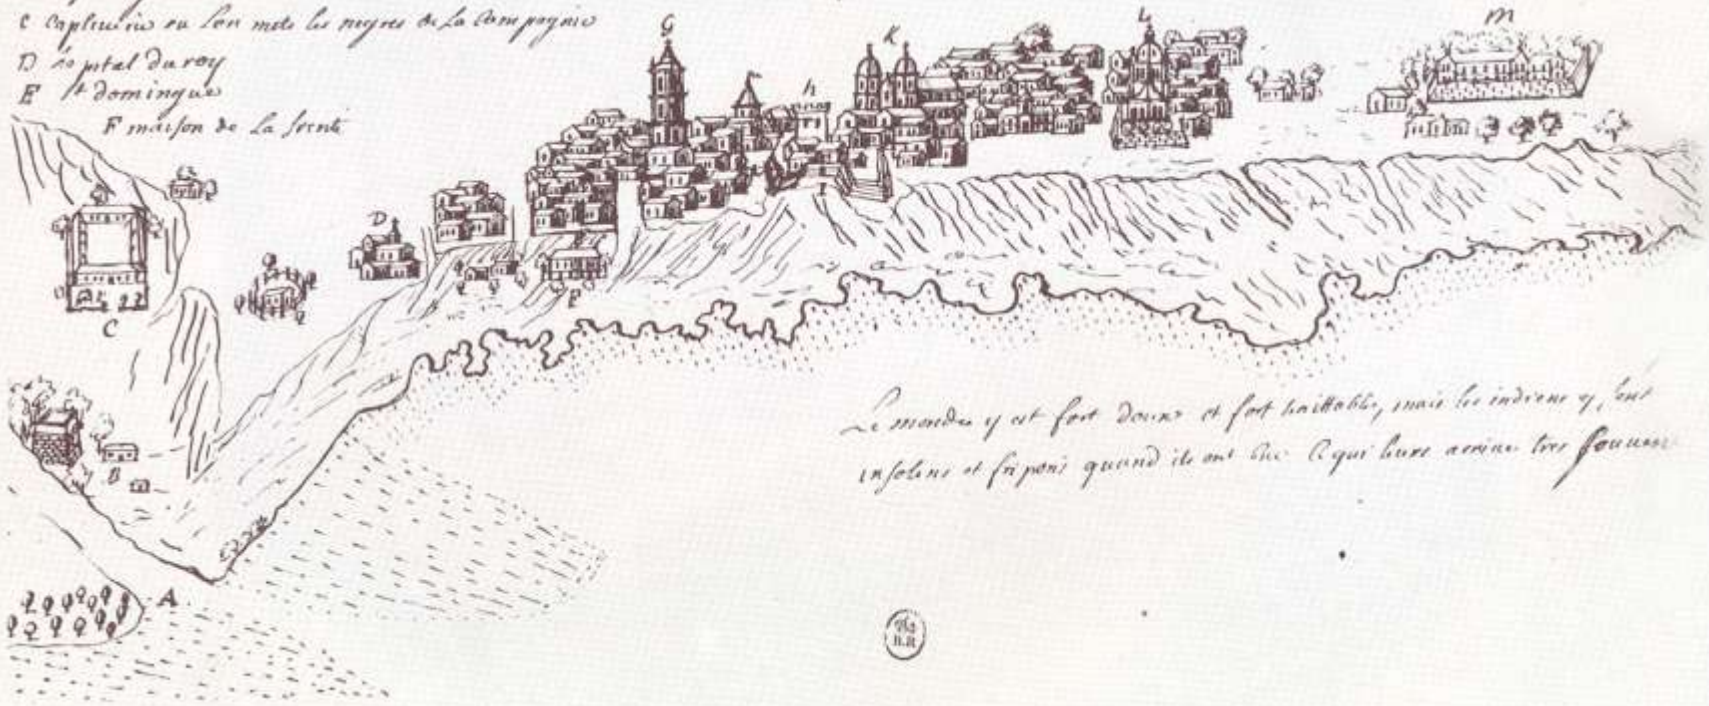 C Captiverie ou l'on mets les negres de La Compagnie
D hopital du roy
E St domingue
F maison de La
G
h
K
L
M
D
F
C
B
A
Le monde y est fort doux et fort, mais les indiens y sont
insolens et fripons quand ils ont bu Ce qui leurs arrive tres souvent
B.R